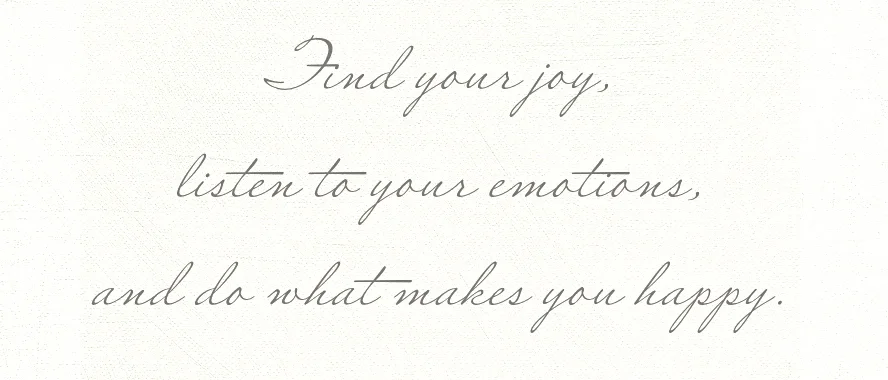 Find your joy,
listen to your emotions,
and do what makes you happy.